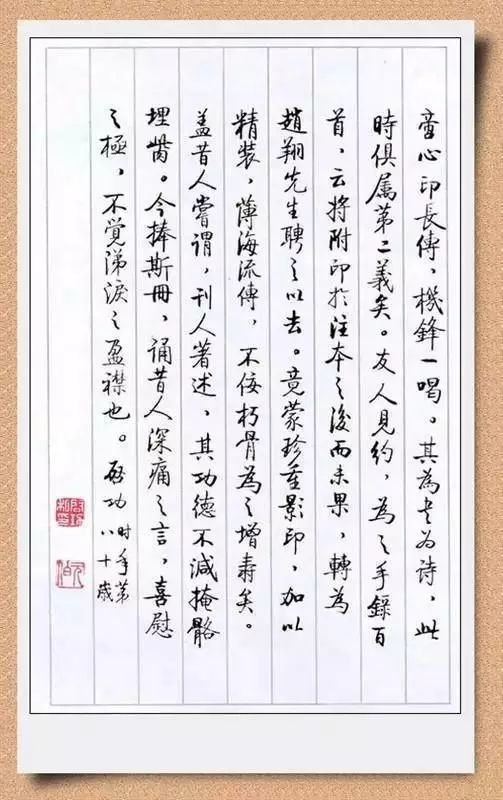 童心印長傳，機鋒一喝。其為書為诗，此
時俱属第二義矣。友人見約，為之手錄百
首，云將附印於注本之後而未果，轉為
趙翔先生聘之以去。竟蒙珍重影印，加以
精装，薄海流傳，不佞朽骨為之增壽矣。
盖昔人嘗謂，刊人著述，其功德不減掩骼
埋胔。今捧斯冊，诵昔人深痛之言，喜慰
之極，不覺涕淚之盈襟也。启功
时年第
八十歲